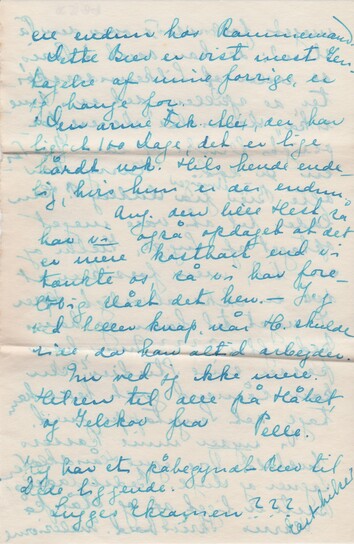 ere endnu hos Rammemand
Dette Brev er vist mest Gen
tagelse af mine forrige, er
jeg bange for.
Den arme Frk. , der har
ligget 100 Dage, det er lige
hårdt nok. Hils hende ende-
lig, hvis hun er der endnu.
Ang. den lille Hest så
har vi også opdaget at det
er mere kostbart end vi
tænkte os, så vi har fore-
løbig slået det hen. — Jeg
ved heller knap, når H. skulde
ride, da han altid arbejder.
Nu ved jeg ikke mere.
Hilsen til alle på Håbet
og Gelskov fra Pelle.
Jeg har et påbegyndt Brev til
liggende.
Lugges Eksamen ? ? ?